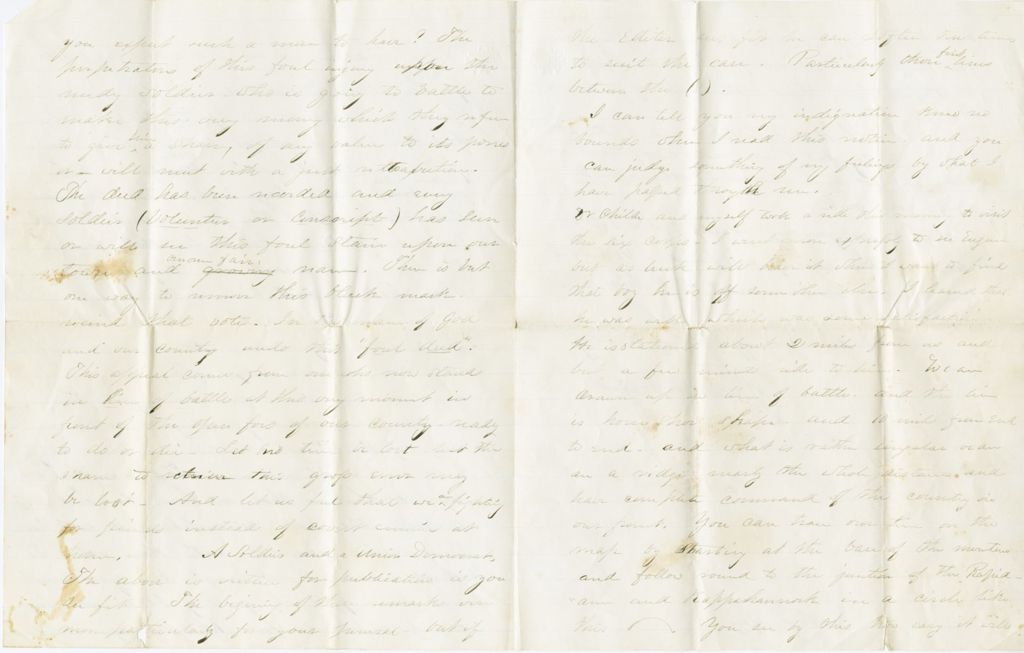 you expect such a man to hear? The
perpetrators of this foul injury upon the
needy soldier who is going to battle to
make this very money which they refuse
to give him a share, of any value to its powers
in – will meet with a just retribution.
The deed has been recorded and every
soldier (Volunteer or Conscript) has seen
or will see this foul stain upon our
town and once fair name. There is but
one way to remove this black mark.
resind that vote. In the name of God
and our country undo this "foul deed".
This appeal comes from one who now stands
in line of battle at this very moment in
front of the open foes of our country ready
to do or die. Let no time be lost lest the
share to achieve this good may
be lost. And let us feel that we are fighting
for friends instead of covert enemies at
home. A Soldier and a Union Democrat.
The above is written for publication if you
see fit. The beginning of these remarks were
more particularly for your perusal but if
the Editor sees fit he can alter the
to suit the case. Particularly those four lines
between the ( ).
I can tell you my indignation knew no
bounds when I read this notice and you
can judge something of my feelings by what I
have passed through me.
Dr Childs and myself took a ride this morning to visit
the six corps. I went on to see Eugene
but as luck will have it when I want to find
that boy he is off some other place. I learned that
he was well which was some satisfaction.
He is stationed about 2 miles from us and
but a few minutes ride to him. We are
drawn up in line of battle and the line
is horse shoe shape and miles from end
to end. and what is rather singular we are
on a ridge nearly the whole distance and
have complete command of the country in
our front. You can trace our line on the
map by starting at the base of the mountain
and follow round to the junction of the Rapid-
ann and Rappahannock in a circle like
this You see by this how easy it will